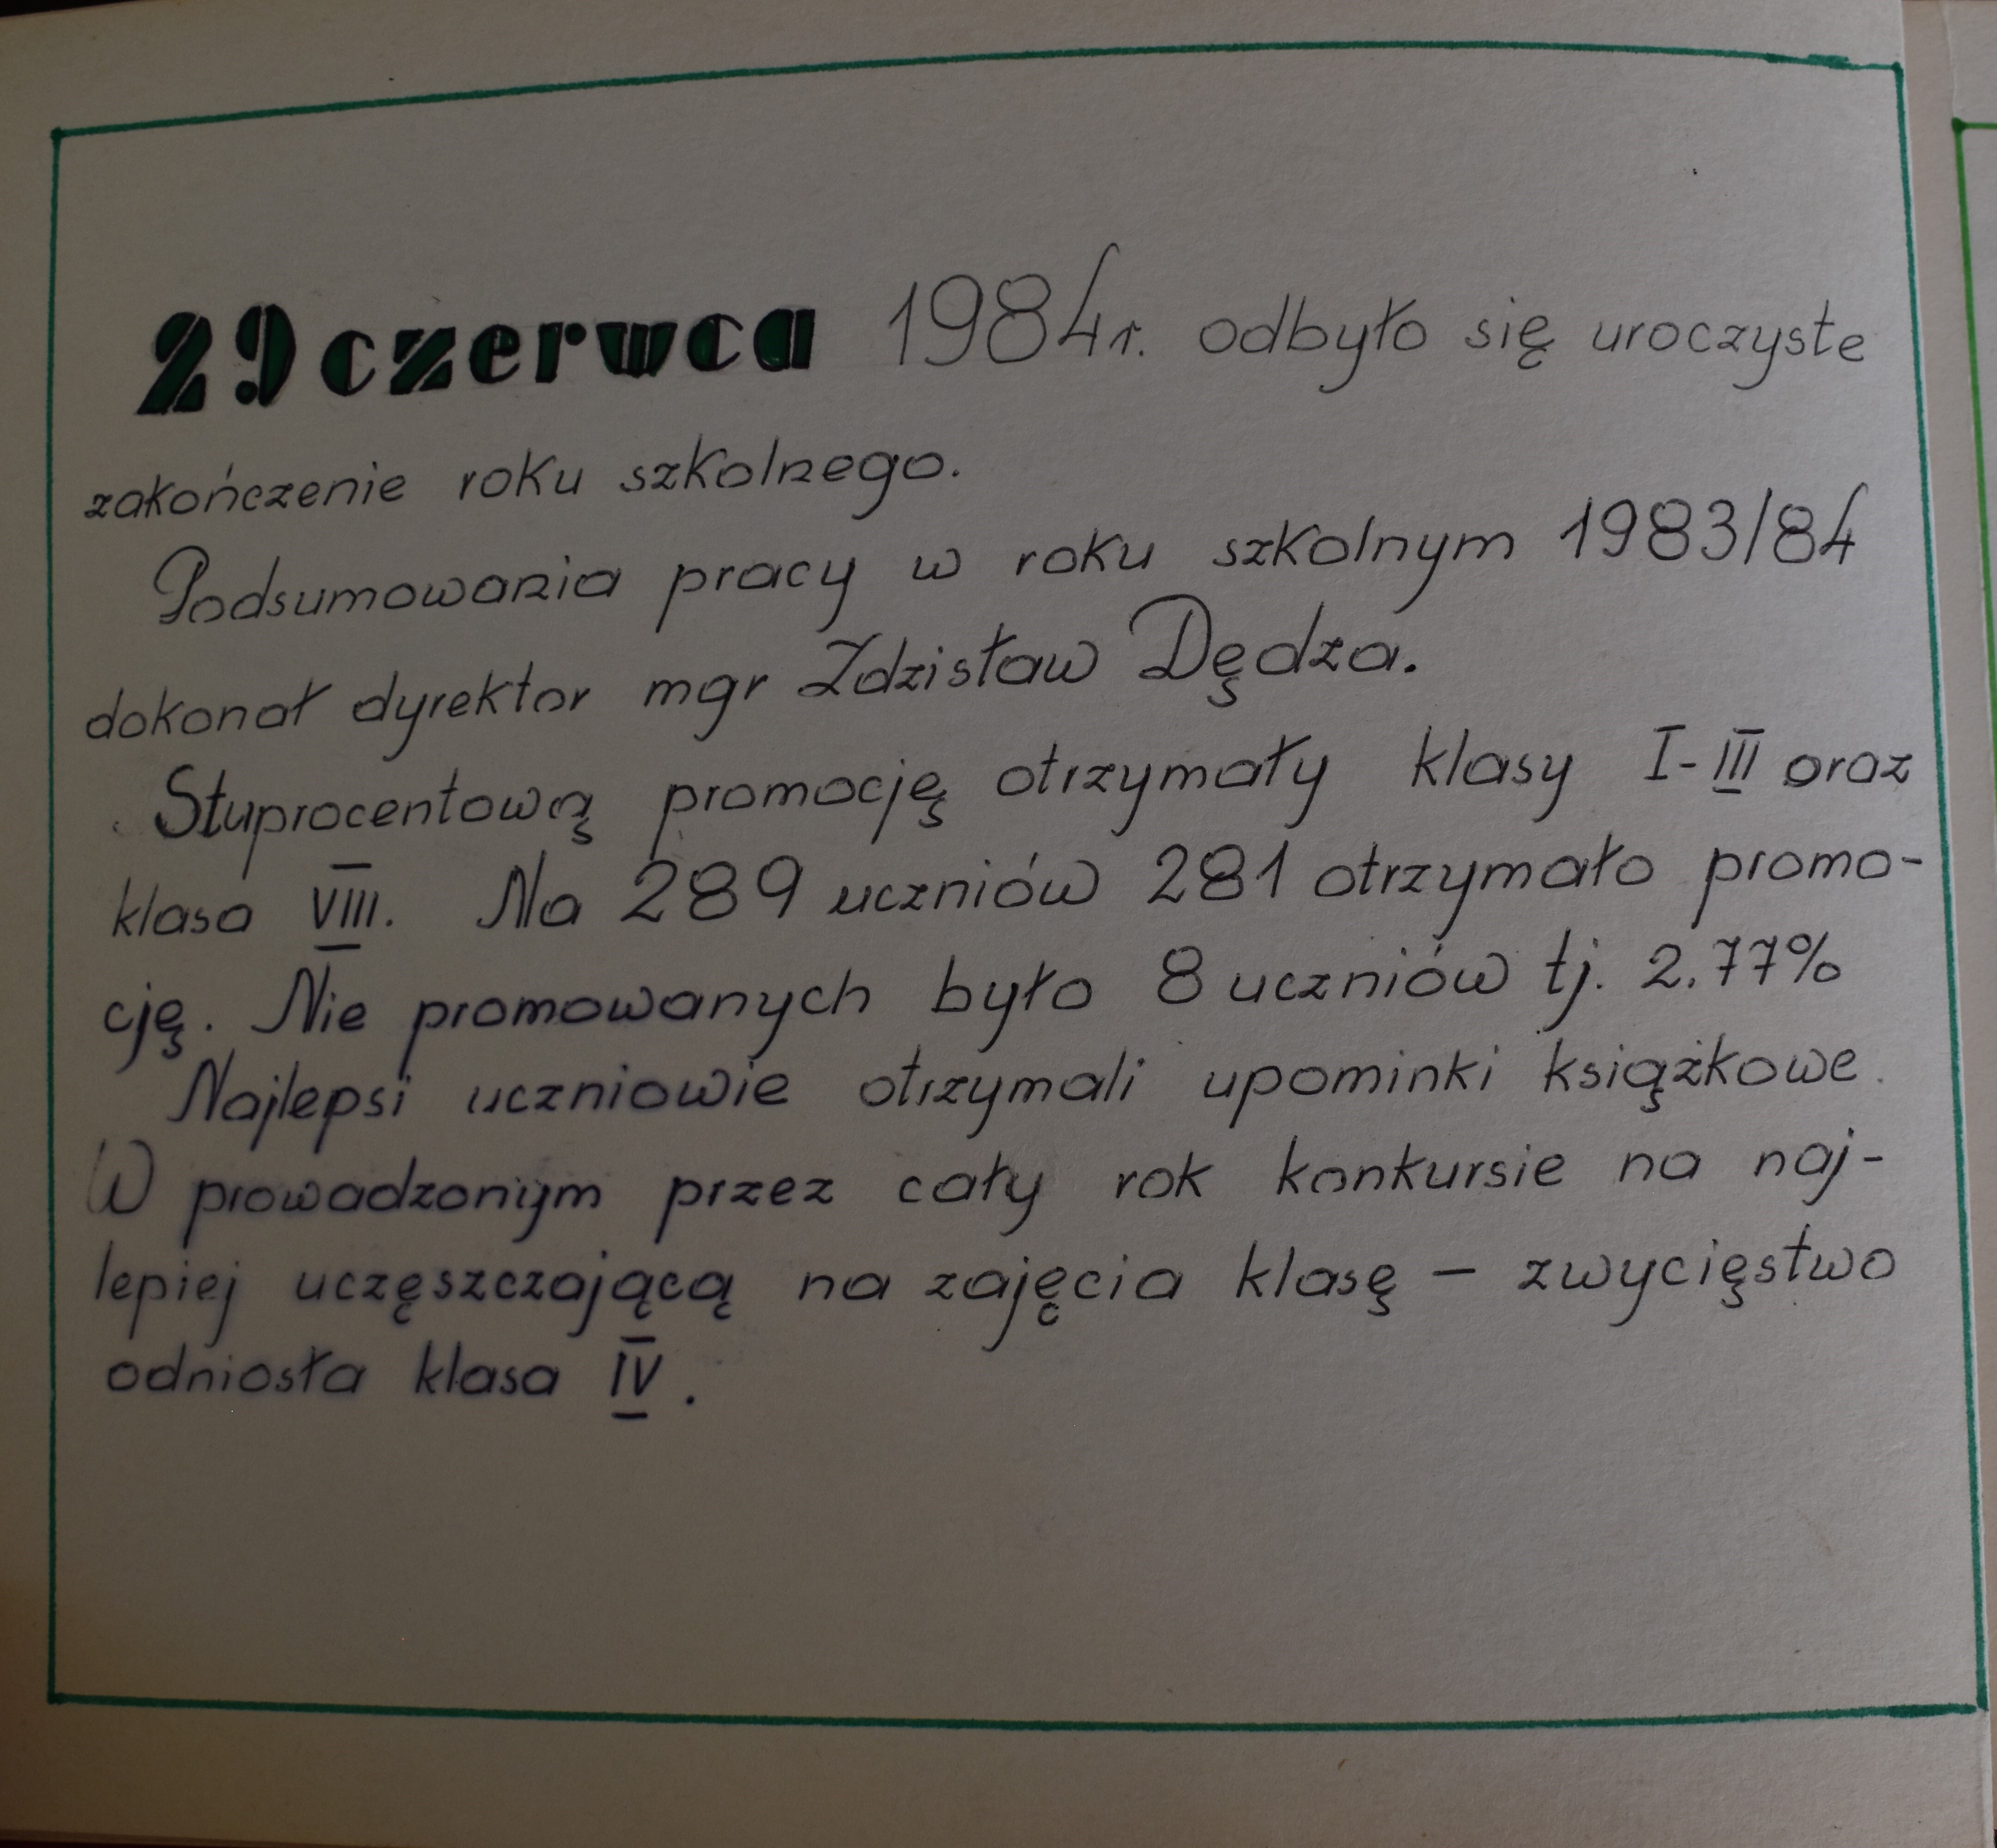 29 czerwca 1984r. odbyło się uroczyste
zakończenie roku szkolnego.
Podsumowania pracy w roku szkolnym 1983/84
dokonał dyrektor mgr Zdzisław Dędza.
Stuprocentową promocję otrzymały klasy I-III oraz
klasa VIII. Na 289 uczniów 281 otrzymało promo-
cję. Nie promowanych było 8 uczniów tj. 2.77%
Najlepsi uczniowie otrzymali upominki książkowe.
W prowadzonym przez cały rok konkursie na naj-
lepiej uczęszczającą na zajęcia klasę – zwycięstwo
odniosła klasa IV.